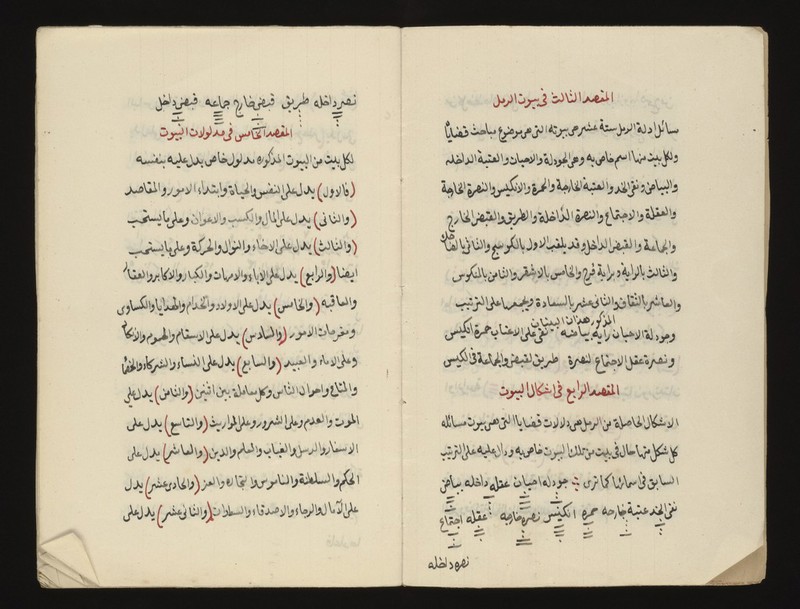 المقصد الثالث في بيوت الرمل
مسائل ادلة الرمل ستة عشر هي بيوته التي هي موضوع مباحث قضايا
ولكل بيت منها اسم خاص به وهي الجودلة والاحيان والعتبة الداخله
والبياض ونقي الخد والعتبة الخارجة والحمرة والانكيس والنصرة الخارجة
والعقلة والاجتماع والنصرة الداخلة والطريق والقبض الخارج
والجماعة والقبض الداخل وقد يلقب الاول بالكوسج والثاني بالضاحك
والثالث بالراية وبراية فرح والخامس بالاشقر والثامن بالنكوس
والعاشر بالثقاف والثاني عشر بالسعادة ويجمعها على الترتيب
المذكور هذان البيتان
وجودلة الاحيان راية بياضه نقي على الاعتاب حمرة انكيس
ونصرة عقل الاجتماع لنصرة طريق لقبض والجماعة في الكيس
المقصد الرابع في اشكال البيوت
الاشكال الحاصلة من الرمل هي دلالات قضايا التي هي بيوت مسائله
كل شكل منها حال في بيت من تلك البيوت خاص به ودال عليه على الترتيب
السابق في اسمائها كما ترى جودله احيان عقله داخله بياض
نقي الخد عتبة خارجه حمره انكيس نصره خارجه عقله اجتماع
نصره داخله
نصره داخله طريق قبض خارج جماعه قبض داخل
المقصد الخامس في مدلولات البيوت
لكل بيت من البيوت المذكوره مدلول خاص يدل عليه بنفسه
(فالاول) يدل على النفس والحياة وابتداء الامور والمقاصد
(والثاني) يدل على المال والكسب والاعوان وعلى ما يستحب
(والثالث) يدل على الاخاء والنوال والحركة وعلى ما يستحب
ايضا (والرابع) يدل على الاباء والامهات والكبار والاكابر والعقار
والعاقبه (والخامس) يدل على الاولاد والخدام والهدايا والكساوى
ومفرحات الامور (والسادس) يدل على الاسقام والهموم
وعلى الاماء والعبيد (والسابع) يدل على النساء والشركاء
والمتاع واحوال الناس وكل معاملة بين اثنين (والثامن) يدل على
الموت والعدم وعلى الشرور وعلى المواريث (والتاسع) يدل على
الاسفار والرسل والغياب والعلم والدين (والعاشر) يدل على
الحكم والسلطنة والناموس والتجاره والعز (والحادى عشر) يدل
على الآمال والرجاء والاصدقاء والسعادات (والثانى عشر) يدل على